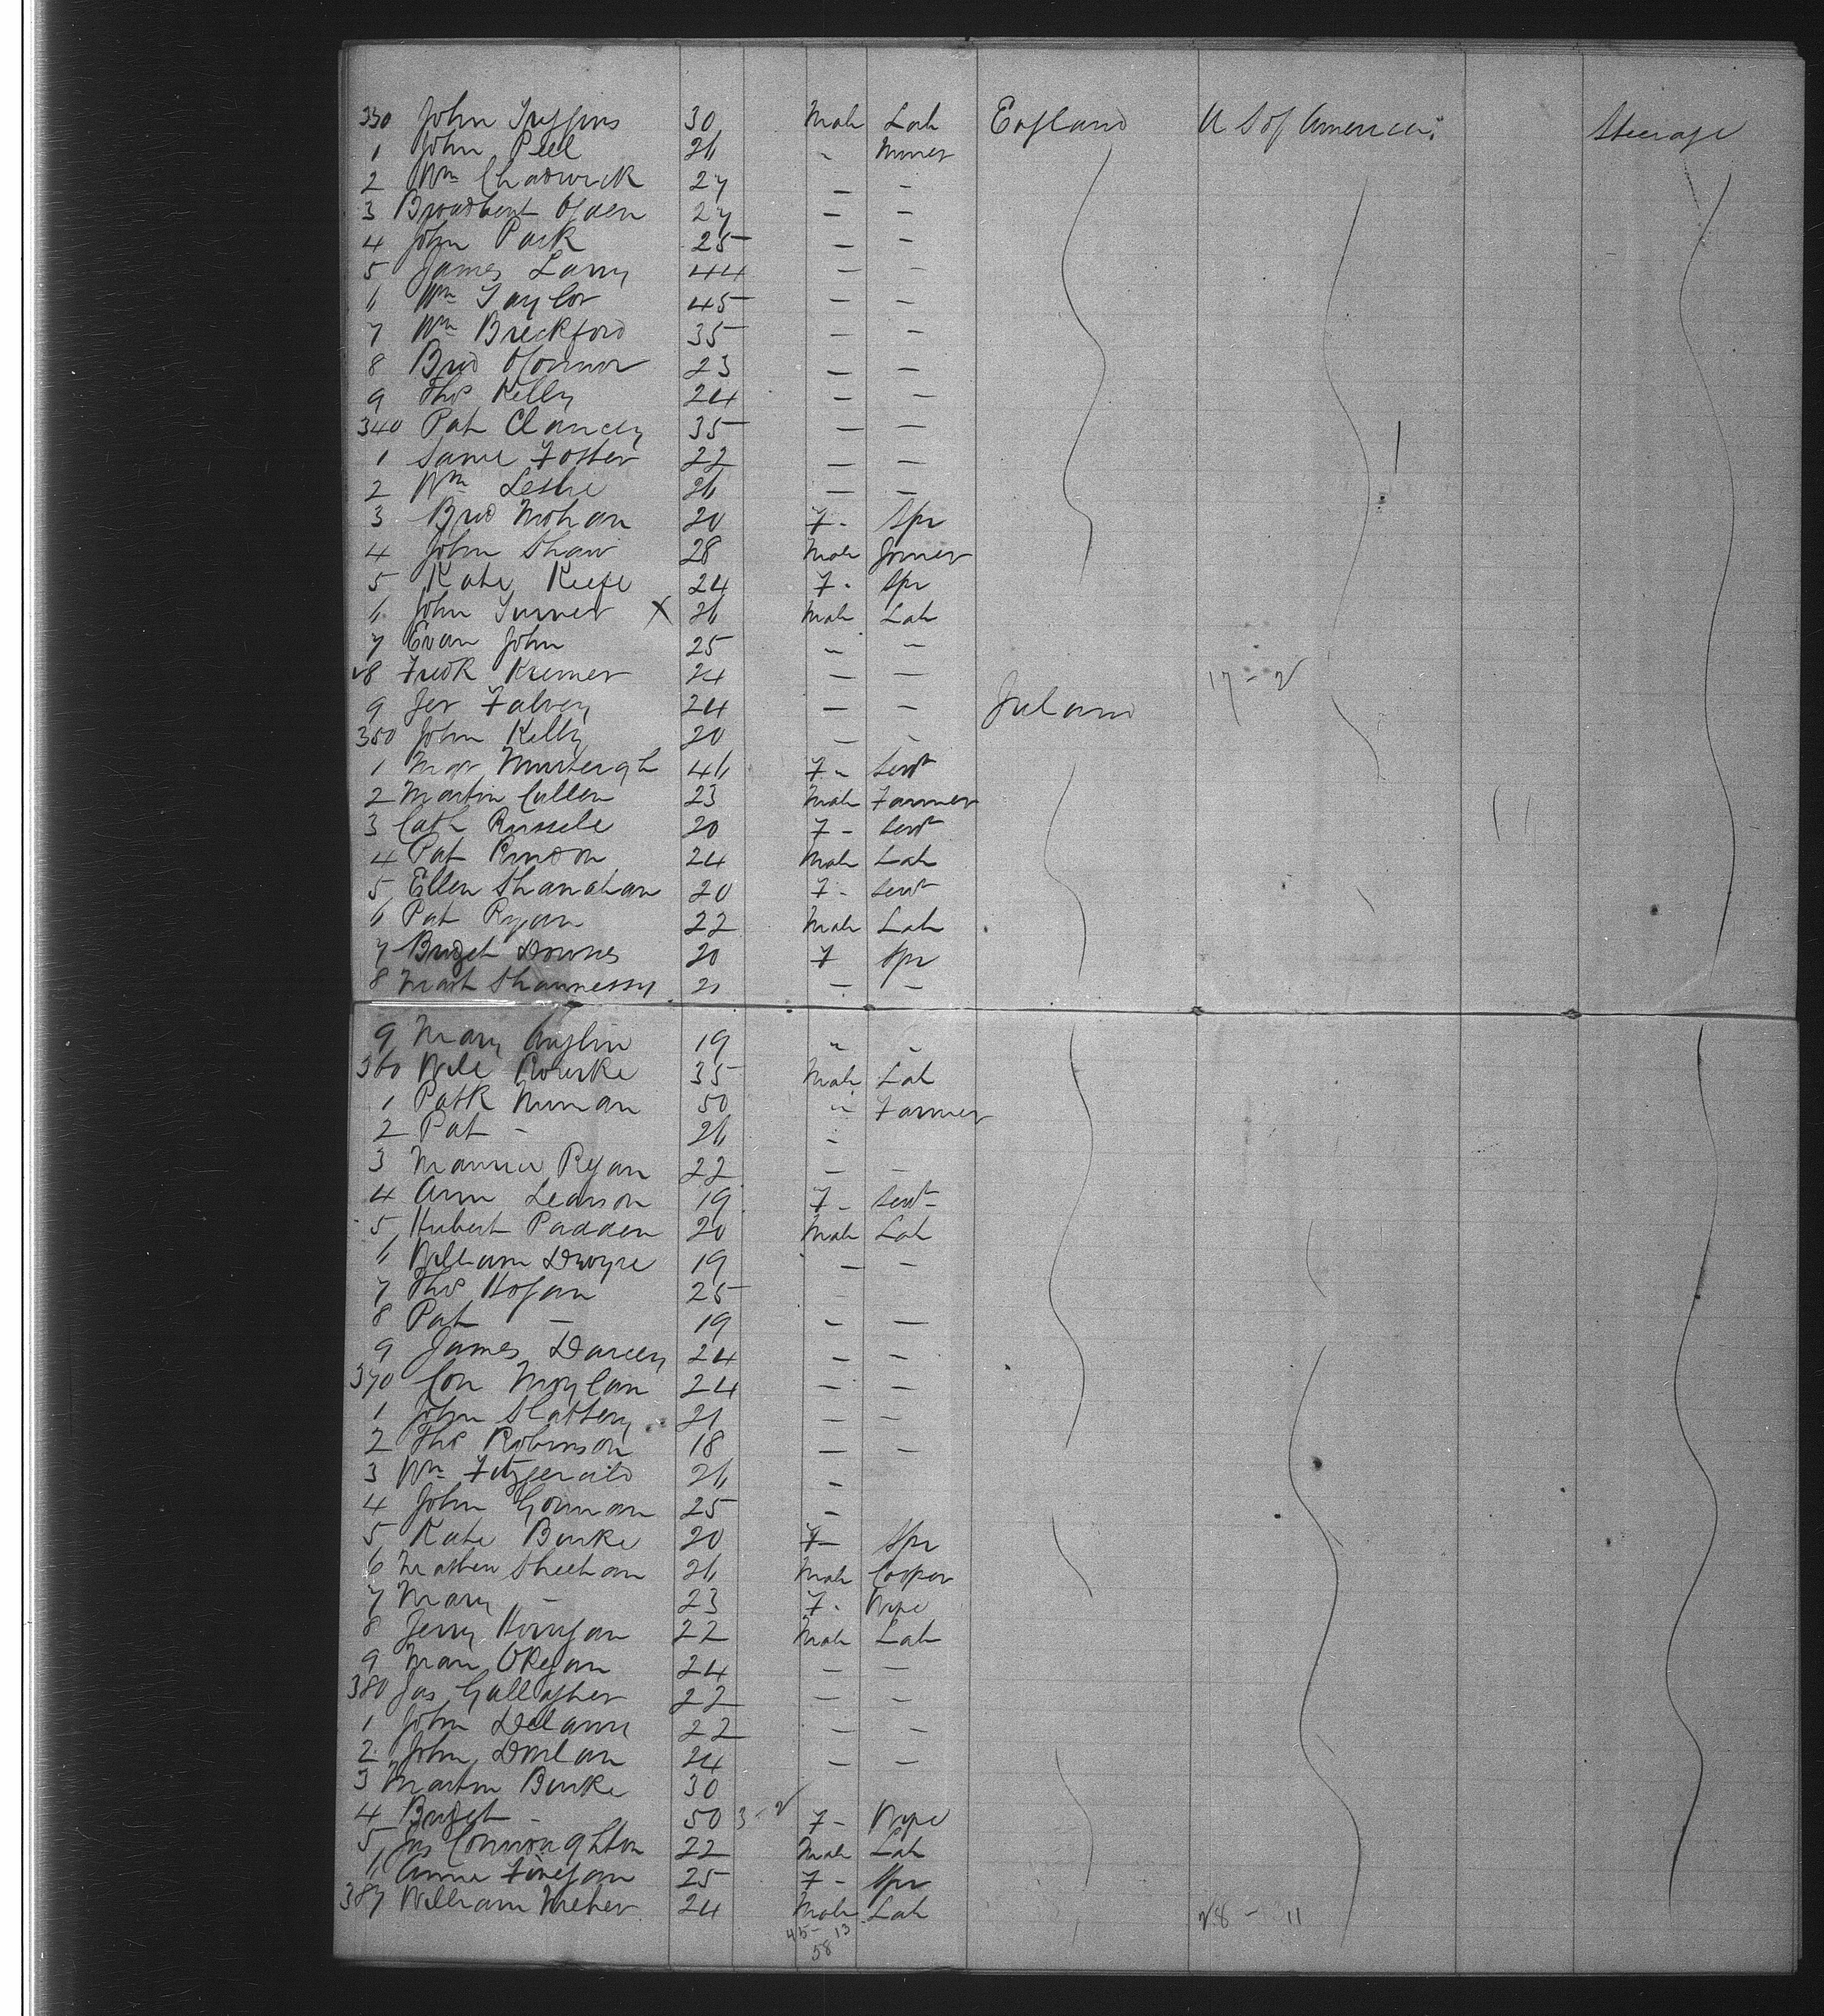 330 John 30 Male Lab England U S of America Steerage
1 John Peel 26 " Miner
2 Wm Chadwick 27 — —
3 Broadbent Ogden 27 — —
4 John Park 25 — —
5 James Larry 44 — —
6 Wm Taylor 45 — —
7 Wm Breckford 35 — —
8 Brid OConnor 23 — —
9 Thos Kelly 24 — —
340 Pat Clancey 35 — —
1 Foster 22 — —
2 Wm Leslie 26 — —
3 Brid Mohan 20 F - Spr
4 John Shaw 28 Male Joiner
5 Kate Keefe 24 F - Spr
6 John Turner X 26 Male Lab
7 Evan John 25 " —
8 Fredk Kremer 24 — — 17 - 2
9 Jer Falvey 24 — — Ireland
350 John Kelly 20 — -
1 Mar Murtaugh 46 F - Servt
2 Martin Cullen 23 Male Farmer
3 Cath Russell 20 F - Servt
4 Pat 24 Male Lab
5 Ellen Shanahan 20 F - Servt
6 Pat Ryan 22 Male Lab
7 Bridget Downes 20 F Spr
8 Mart Shaunnessy 21 — —
9 Mary Anglin 19 " "
360 Will Rourke 35 Male Lab
1 Patk 50 " Farmer
2 Pat - 26 -
3 Maurice Ryan 22 — —
4 Ann Learson 19 F - Servt
5 Hubert Padden 20 Male Lab
6 William Dwyre 19 — —
7 Thos Hogan 25 —
8 Pat — 19 - —
9 James Darcey 24 — —
370 Con Moylan 24 — —
1 John Slattery 21 — —
2 Thos Robinson 18 — —
3 Wm Fitzgerald 26 -
4 John Gorman 25 -
5 Kate Burke 20 F - Spr
6 Mathew Sheehan 26 Male Cooper
7 Mary — 23 F - Wife
8 Jerry Horrigan 22 Male Lab
9 ORegan 24 — —
380 Jas Gallagher 22 — —
1 John 22 — —
2 John Donlan 24 — —
3 Martin Burke 30
4 Bridget - 50 3 - 2 F - Wife
5 Jas Connoughton 22 Male Lab
6 Annie Finegan 25 F - Spr
387 William Meher 24 Male Lab 28 - 11
45 - 13
58